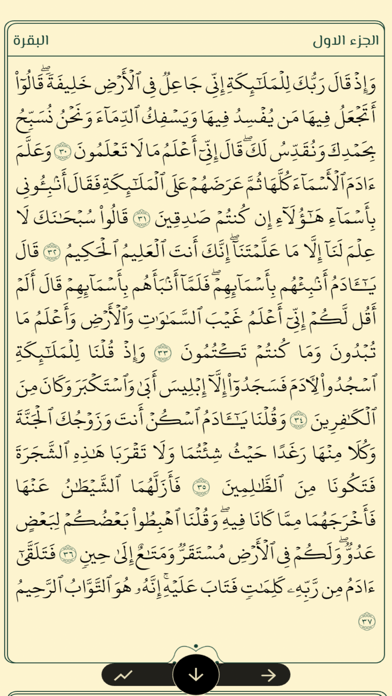 الجزء الاول
البقرة
وَإِذْ قَالَ رَبُّكَ لِلْمَلَٰٓئِكَةِ إِنِّي جَاعِلٌ فِي ٱلْأَرْضِ خَلِيفَةًۖ قَالُوٓا۟
أَتَجْعَلُ فِيهَا مَن يُفْسِدُ فِيهَا وَيَسْفِكُ ٱلدِّمَآءَ وَنَحْنُ نُسَبِّحُ
بِحَمْدِكَ وَنُقَدِّسُ لَكَۖ قَالَ إِنِّيٓ أَعْلَمُ مَا لَا تَعْلَمُونَ ٣٠ وَعَلَّمَ
ءَادَمَ ٱلْأَسْمَآءَ كُلَّهَا ثُمَّ عَرَضَهُمْ عَلَى ٱلْمَلَٰٓئِكَةِ فَقَالَ أَنۢبِـُٔونِي
بِأَسْمَآءِ هَٰٓؤُلَآءِ إِن كُنتُمْ صَٰدِقِينَ ٣١ قَالُوا۟ سُبْحَٰنَكَ لَا
عِلْمَ لَنَآ إِلَّا مَا عَلَّمْتَنَآۖ إِنَّكَ أَنتَ ٱلْعَلِيمُ ٱلْحَكِيمُ ٣٢ قَالَ
يَٰٓـَٔادَمُ أَنۢبِئْهُم بِأَسْمَآئِهِمْۖ فَلَمَّآ أَنۢبَأَهُم بِأَسْمَآئِهِمْ قَالَ أَلَمْ
أَقُل لَّكُمْ إِنِّيٓ أَعْلَمُ غَيْبَ ٱلسَّمَٰوَٰتِ وَٱلْأَرْضِ وَأَعْلَمُ مَا
تُبْدُونَ وَمَا كُنتُمْ تَكْتُمُونَ ٣٣ وَإِذْ قُلْنَا لِلْمَلَٰٓئِكَةِ
ٱسْجُدُوا۟ لِـَٔادَمَ فَسَجَدُوٓا۟ إِلَّآ إِبْلِيسَ أَبَىٰ وَٱسْتَكْبَرَ وَكَانَ مِنَ
ٱلْكَٰفِرِينَ ٣٤ وَقُلْنَا يَٰٓـَٔادَمُ ٱسْكُنْ أَنتَ وَزَوْجُكَ ٱلْجَنَّةَ
وَكُلَا مِنْهَا رَغَدًا حَيْثُ شِئْتُمَا وَلَا تَقْرَبَا هَٰذِهِ ٱلشَّجَرَةَ
فَتَكُونَا مِنَ ٱلظَّٰلِمِينَ ٣٥ فَأَزَلَّهُمَا ٱلشَّيْطَٰنُ عَنْهَا
فَأَخْرَجَهُمَا مِمَّا كَانَا فِيهِۖ وَقُلْنَا ٱهْبِطُوا۟ بَعْضُكُمْ لِبَعْضٍ
عَدُوٌّۖ وَلَكُمْ فِي ٱلْأَرْضِ مُسْتَقَرٌّ وَمَتَٰعٌ إِلَىٰ حِينٍ ٣٦ فَتَلَقَّىٰٓ
ءَادَمُ مِن رَّبِّهِۦ كَلِمَٰتٍ فَتَابَ عَلَيْهِۚ إِنَّهُۥ هُوَ ٱلتَّوَّابُ ٱلرَّحِيمُ
٣٧